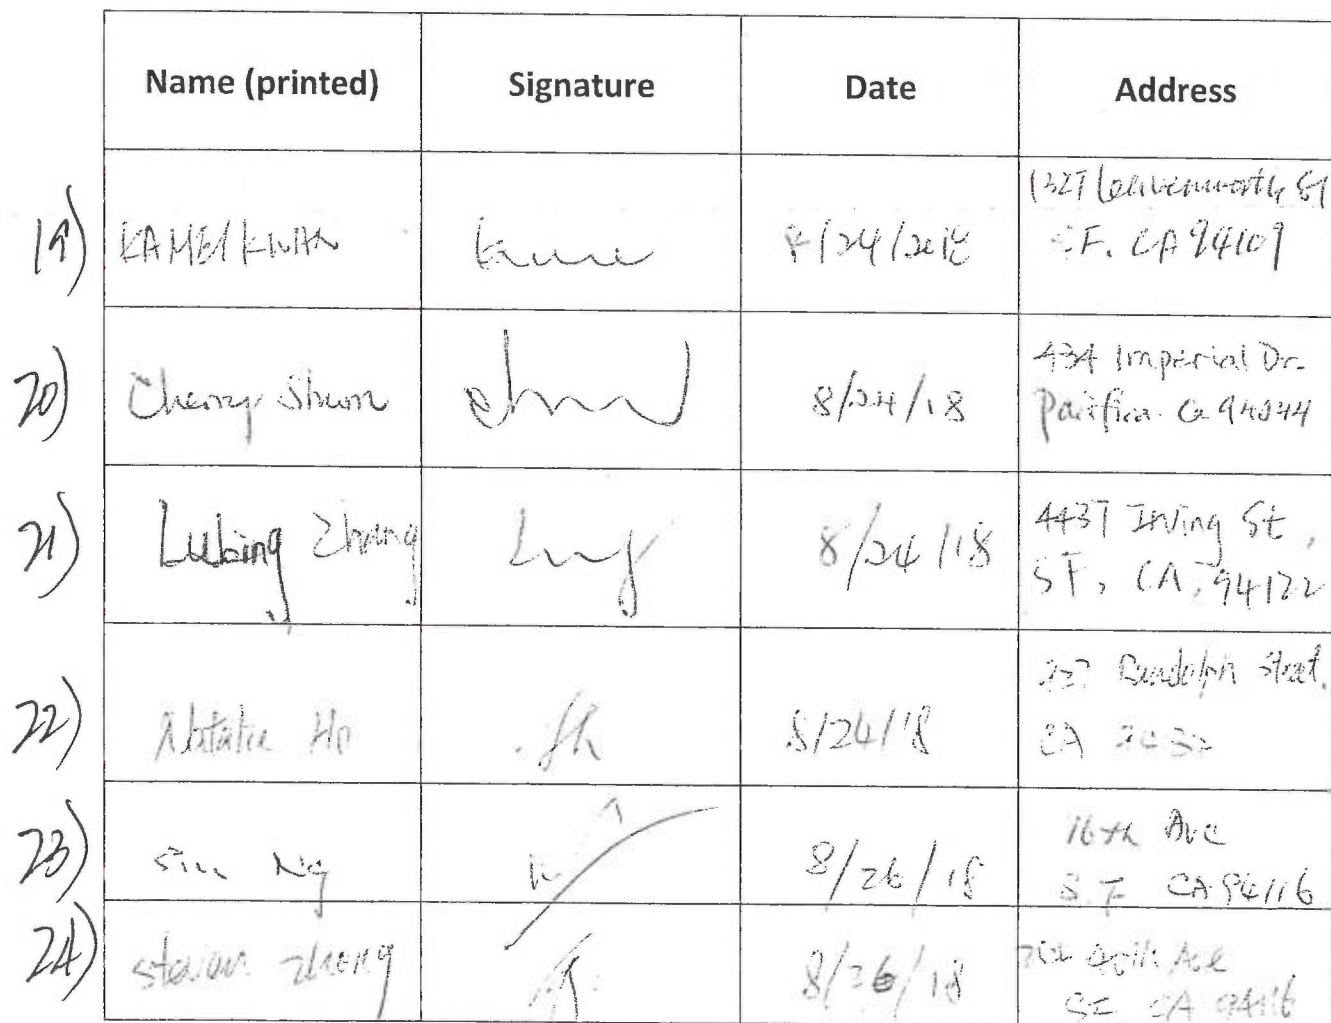 Name (printed) Signature Date Address
19) KAMEI KWAN 8/24/2018 1327 Leavenworth St
SF. CA 94109
20) Cherry Shum 8/24/18 434 Imperial Dr.
Pacifica Ca 94044
21) Lubing Zhang 8/24/18 4437 Irving St,
SF, CA, 94122
22) Natalie Ho 8/24/18 Randolph Street.
CA
23) Ng 8/26/18 16th Ave
S.F CA 94116
24) steven zheng 8/26/18 Ave
SF CA 94116